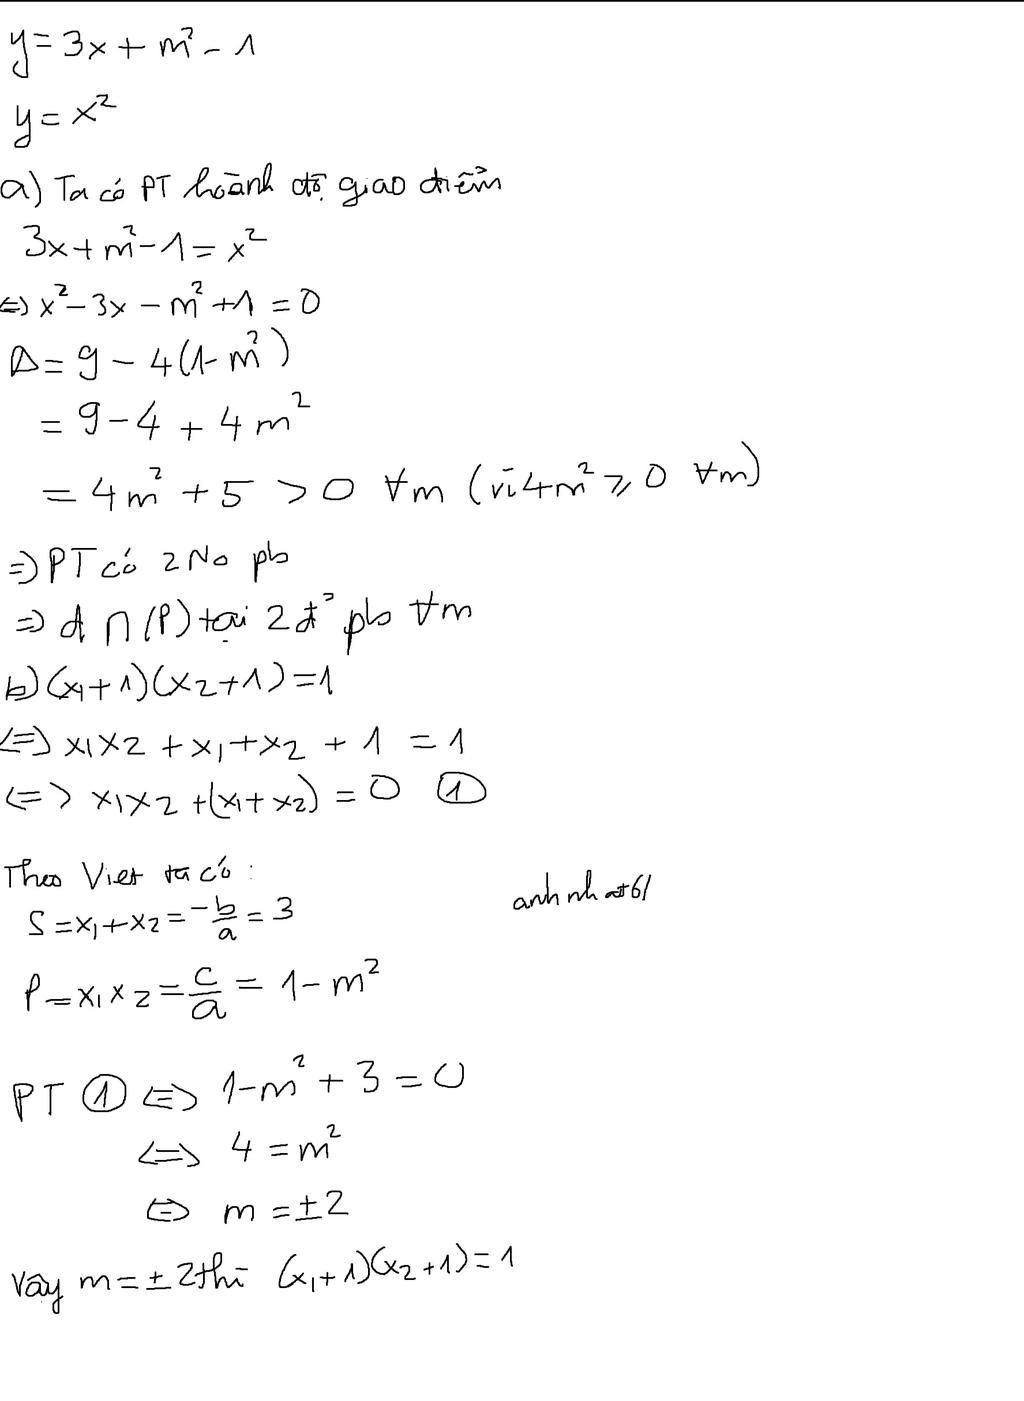 y = 3x + m² - 1
y = x²
a) Ta có PT hoành độ giao điểm
3x + m² - 1 = x²
⇔ x² - 3x - m² + 1 = 0
Δ = 9 - 4(1 - m²)
= 9 - 4 + 4m²
= 4m² + 5 > 0 ∀m (vì 4m² ⩾ 0 ∀m)
⇒ PT có 2 No pb
⇒ d ∩ (P) tại 2 đ² pb ∀m
b) (x₁ + 1)(x₂ + 1) = 1
⇔ x₁x₂ + x₁ + x₂ + 1 = 1
⇔ x₁x₂ + (x₁ + x₂) = 0 ①
Theo Viet ta có :
anhnhat61
S = x₁ + x₂ = -b/a = 3
P = x₁x₂ = c/a = 1 - m²
PT ① ⇔ 1 - m² + 3 = 0
⇔ 4 = m²
⇔ m = ±2
Vậy m = ±2 thì (x₁ + 1)(x₂ + 1) = 1